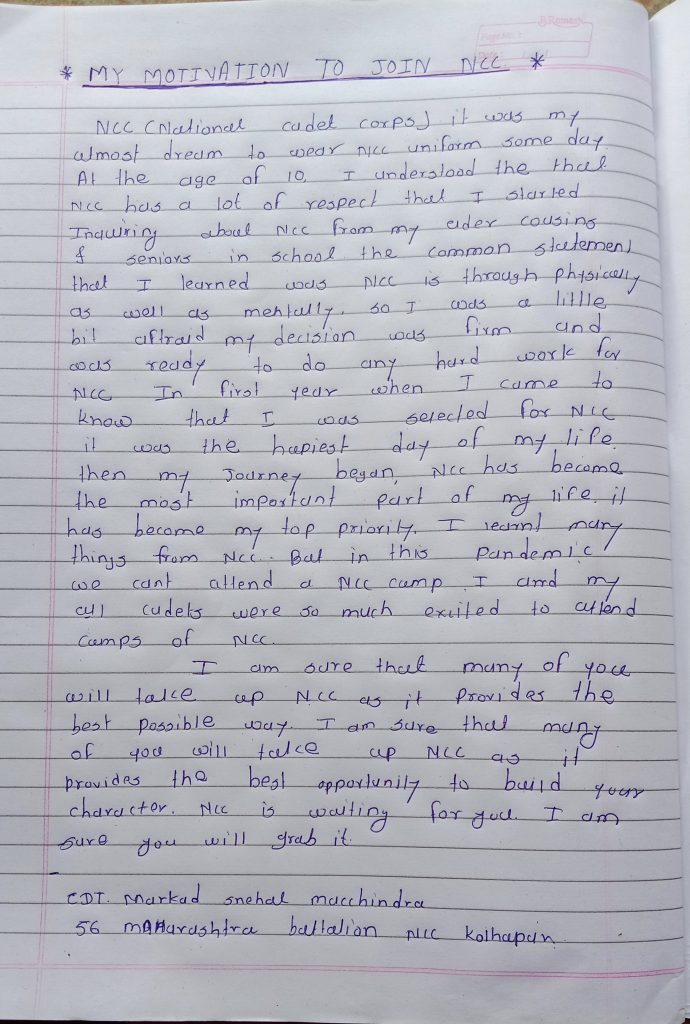 B.Remesh
Page No.:
Date:
* MY MOTIVATION TO JOIN NCC. *
NCC (National cadet corps) it was my
almost dream to wear NCC uniform some day
At the age of 10, I understood the that
NCC has a lot of respect that I started
Inquiring about NCC from my elder cousins
& seniors in school the common statement
that I learned was NCC is through physically
as well as mentally. so I was a little
bit aftraid my decision was firm and
was ready to do any hard work for
NCC In first year when I came to
know that I was selected for NCC
it was the hapiest day of my life.
then my Journey began, NCC has become
the most important part of my life. it
has become my top priority. I learnt many
things from NCC. But in this Pandemic
we cant attend a NCC camp. I and my
all cadets were so much exited to attend
camps of NCC.
I am sure that many of you
will take up NCC as it provides the
best possible way. I am sure that many
of you will take up NCC as it
provides the best opportunity to build your
character. NCC is waiting for you. I am
sure you will grab it.
CDT. Markad snehal macchindra
56 mAHarashtra battalion NCC Kolhapur.